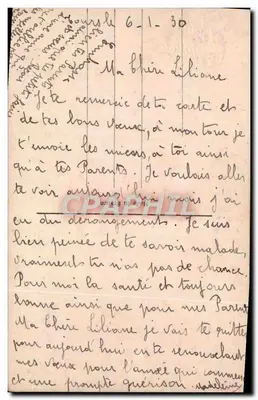 Tours le 6-1-30
Ma Chère Liliane
Je te remercie de ta carte et
de tes bons vœux, à mon tour je
t'envoie les miens, à toi ainsi
qu'à tes Parents. Je voulais aller
te voir aujourd'hui mais j'ai
eu du dérangements. Je suis
bien peinée de te savoir malade,
vraiment tu n'as pas de chance.
Pour moi la santé est toujours
bonne ainsi que pour mes Parents
Ma Chère Liliane je vais te quitter
pour aujourd'hui en te renouvelant
mes vœux pour l'année qui commence
et une prompte guérison. Madeleine
CPAPHIL